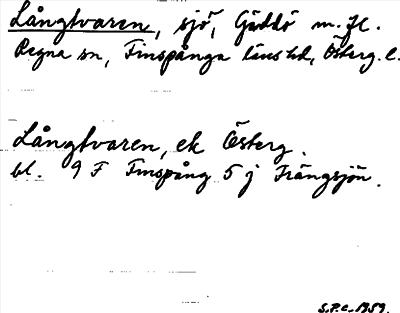 Långtvaren, sjö, Gäddö m. fl.
Regna sn, Finspånga läns hd, Österg. l.
Långtvaren, ek Österg.
bl. 9 F Finspång 5 j Trängsjön.
S.P.C. 1959.